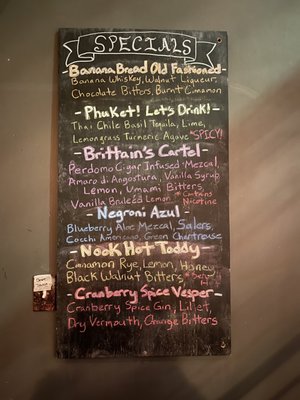 SPECIALS
-Banana Bread Old Fashioned-
Banana Whiskey, Walnut Liqueur,
Chocolate Bitters, Burnt Cinnamon
-Phuket! Let's Drink!-
Thai Chile Basil Tequila, Lime,
Lemongrass Turmeric Agave *SPICY!
-Brittain's Cartel-
Perdomo Cigar Infused Mezcal,
Amaro di Angostura, Vanilla Syrup
Lemon, Umami Bitters,
Vanilla Bruleed Lemon *Contains
Nicotine
-Negroni Azul-
Blueberry Aloe Mezcal, Salers,
Cocchi Americano, Green Chartreuse
-Nook Hot Toddy-
Cinnamon Rye, Lemon, Honey,
Black Walnut Bitters
-Cranberry Spice Vesper-
Cranberry Spice Gin, Lillet,
Dry Vermouth, Orange Bitters